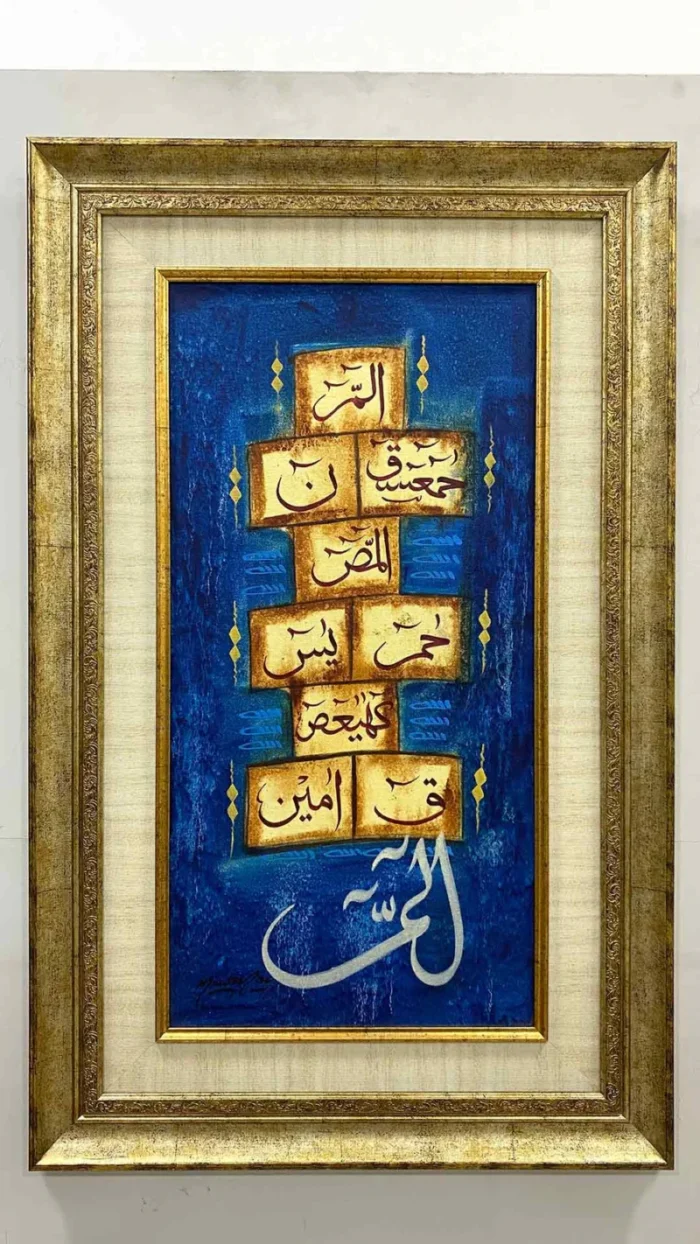 المّر
حٰمعسق ن
المّص
حٰم يٰس
كهٰيعص
ق امين
المّ